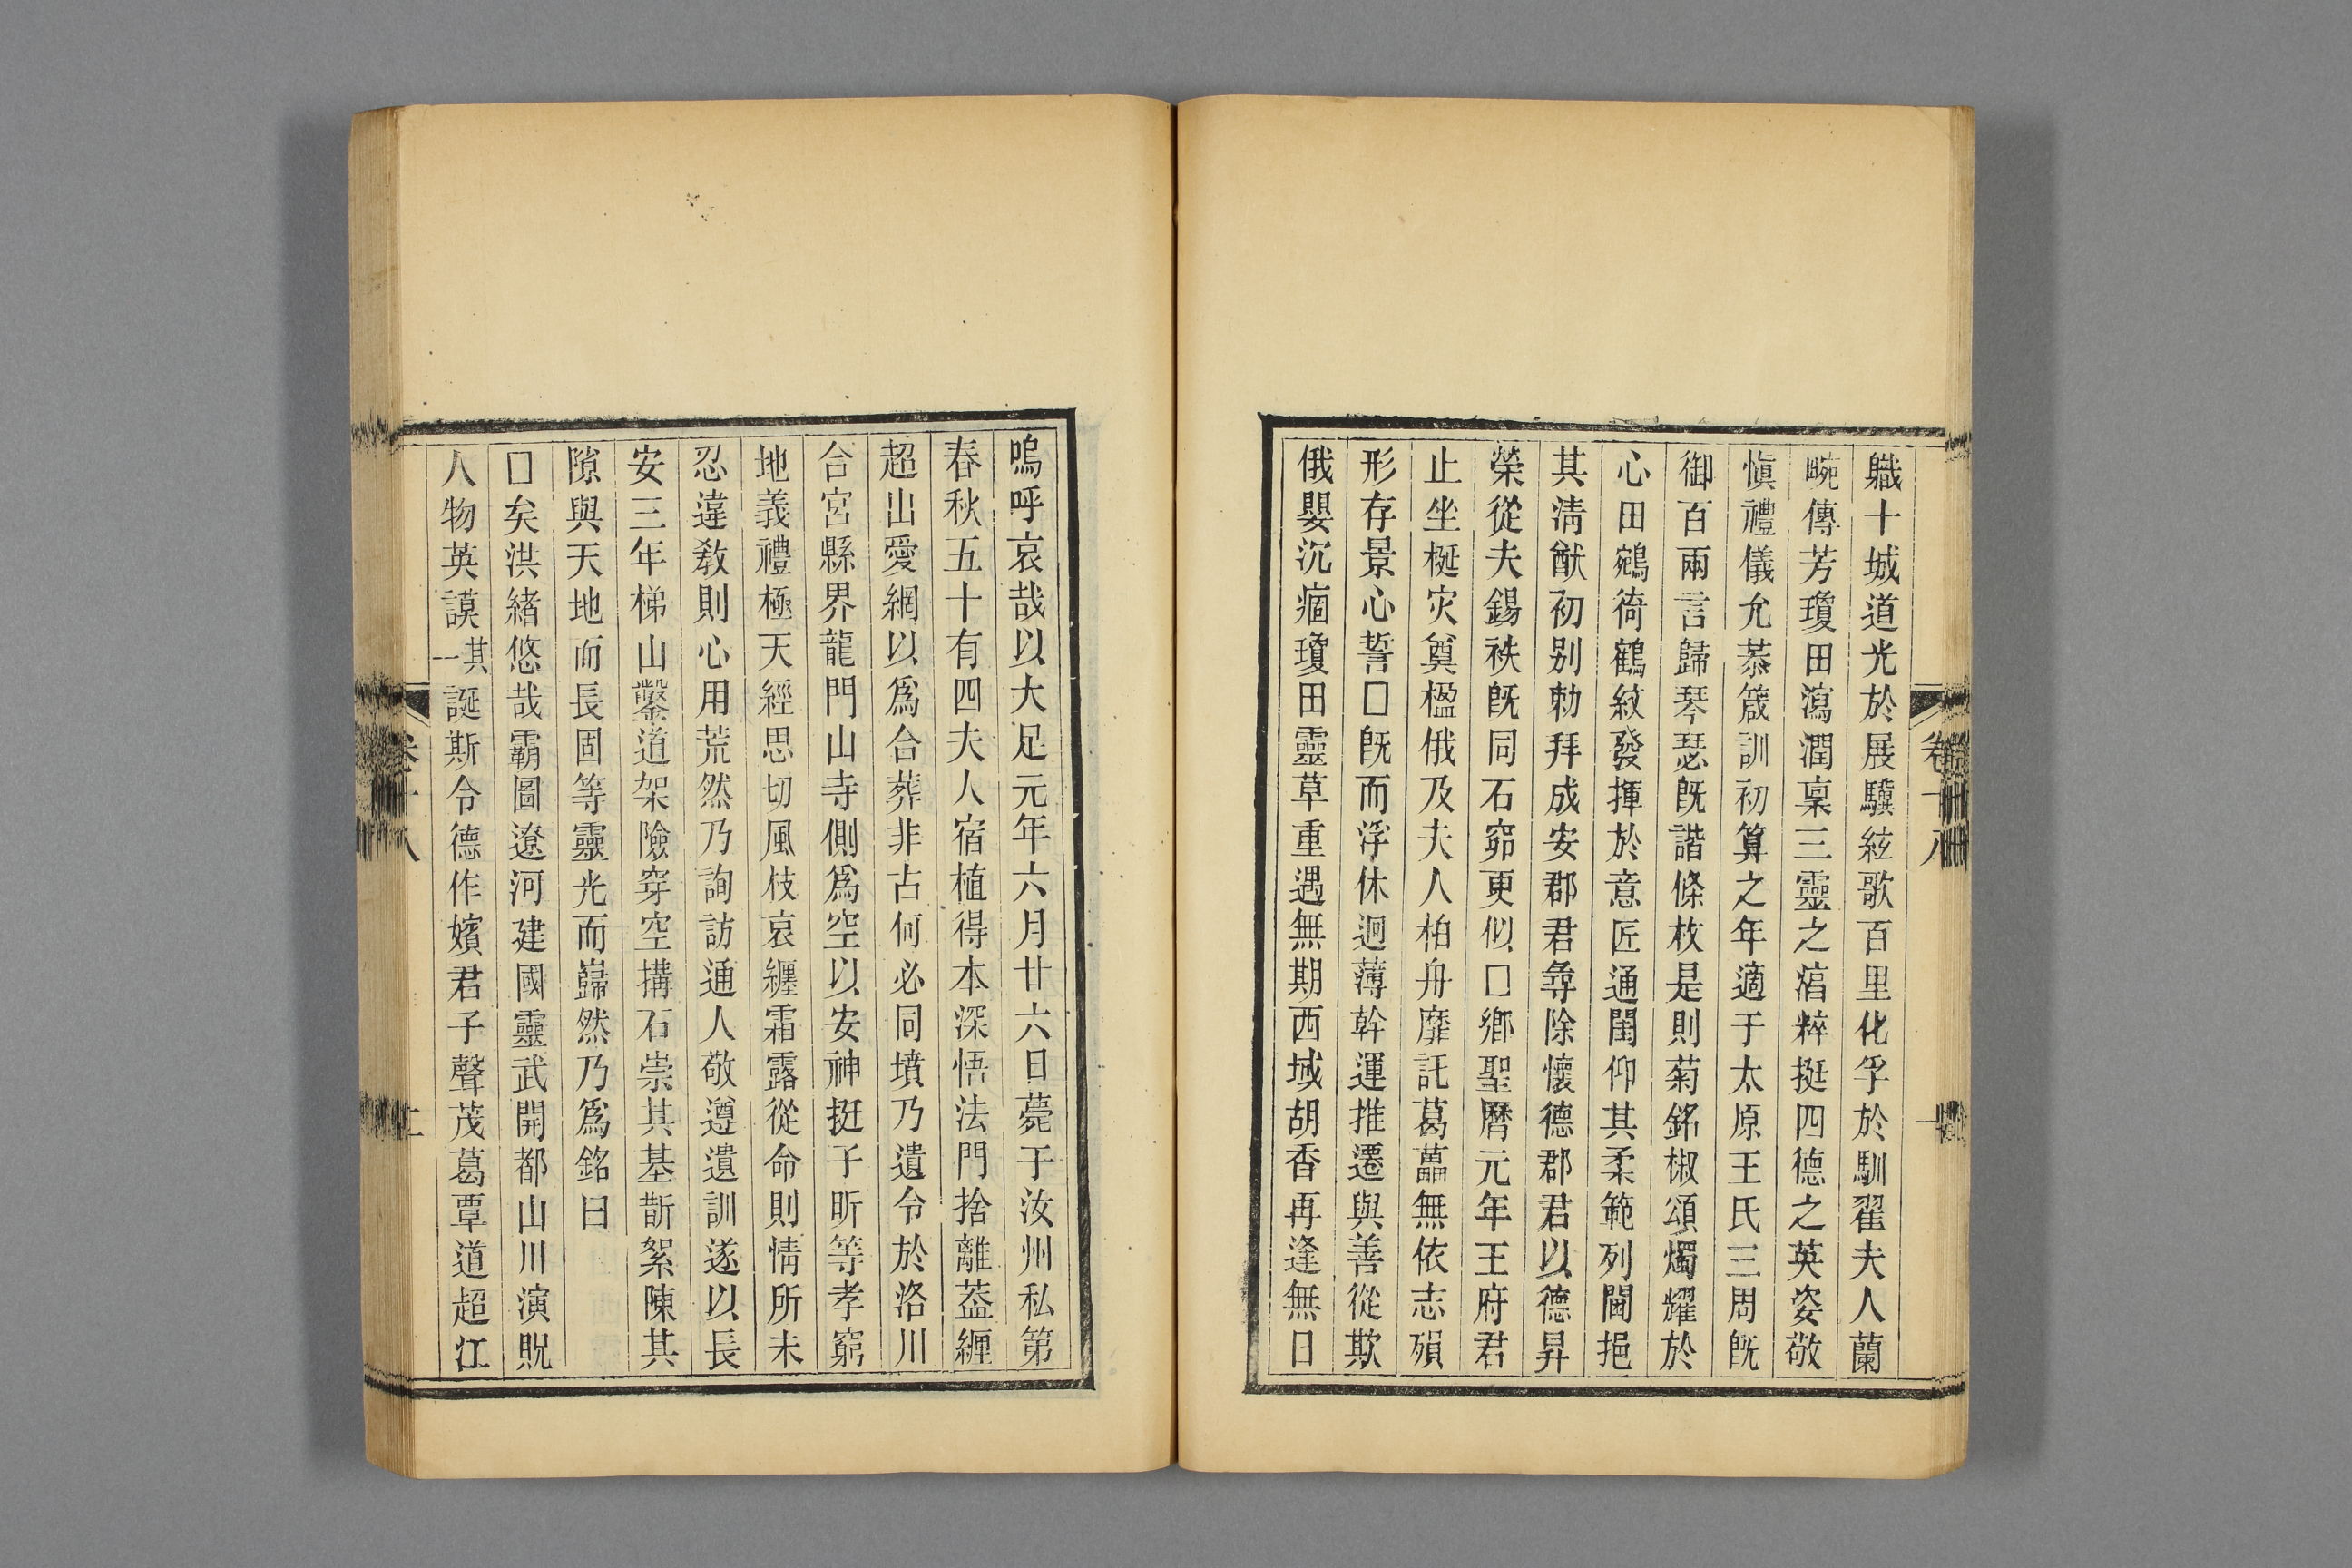 軄十城道光於展驥絃歌百里化孚於馴翟夫人蘭
畹傳芳瓊田瀉潤稟三靈之㾗粹挺四德之英姿敬
愼禮儀允恭箴訓初算之年適于太原王氏三周既
御百兩言歸琴瑟既諧條枚是則菊銘椒頌燭耀於
心田鵷㣲鶴紋發揮於意匠通閨仰其柔範列閫挹
其淸猷初别勅拜成安郡君尋除懷德郡君以德昇
榮從夫錫秩既同石窌更似□鄉聖曆元年王府君
止坐梴灾奠楹俄及夫人柏舟靡託葛藟無依志殞
形存景心誓□既而浮休迴薄幹運推遷與善從欺
俄嬰沉痼瓊田靈草重遇無期西域胡香再逢無日
嗚呼哀哉以大足元年六月廿六日薨于汝州私第
春秋五十有四夫人宿植得本深悟法門捨離葢纏
超出愛網以爲合葬非古何必同墳乃遺令於洛川
合宮縣界龍門山寺側爲空以安神挺子昕等孝窮
地義禮極天經思切風枝哀纏霜露從命則情所未
忍違教則心用荒然乃詢訪通人敬遵遺訓遂以長
安三年梯山鑿道架險穿空搆石崇其基斮絮陳其
隙與天地而長固等靈光而巋然乃爲銘曰
□矣洪緖悠哉霸圖遼河建國靈武開都山川演貺
人物英謨其一誕斯令德作嬪君子聲茂葛覃道超江